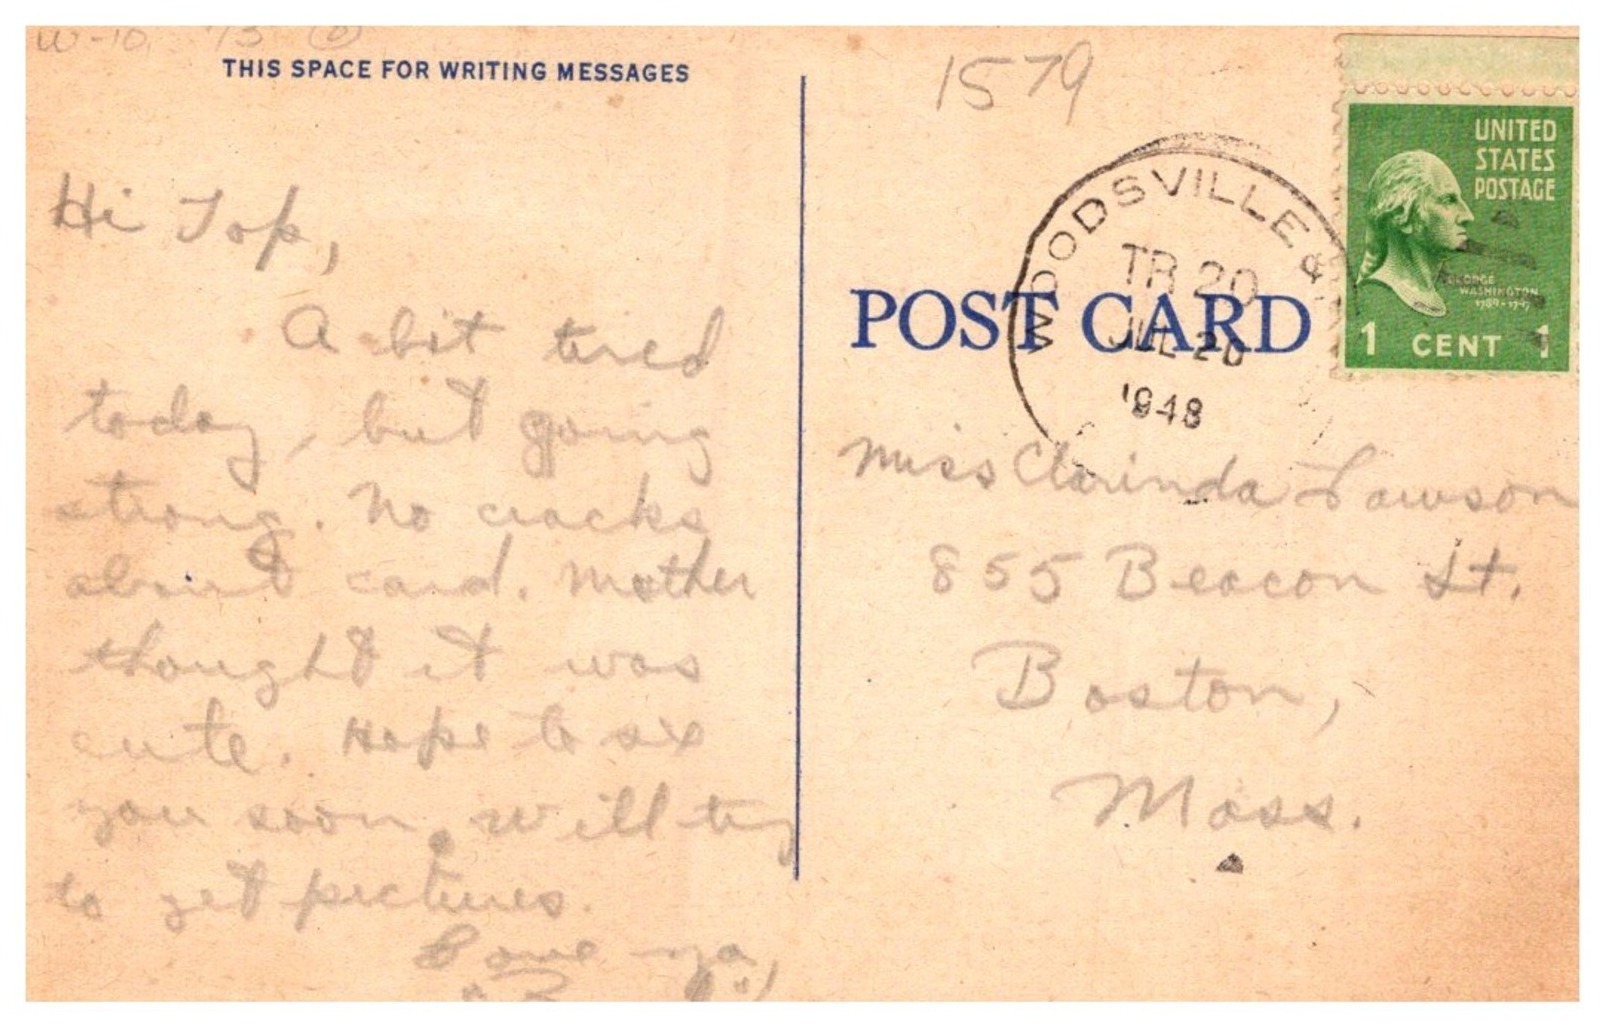 W-10
THIS SPACE FOR WRITING MESSAGES
Hi Top,
A bit tired
today, but going
strong. No cracks
about card. Mother
thought it was
cute. Hope to see
you soon. Will try
to get pictures.
Love ya,
1579
WOODSVILLE &
TR 20
JUL 20
1948
UNITED
STATES
POSTAGE
GEORGE
WASHINGTON
1789-1797
1 CENT 1
POST CARD
Miss Clarinda Lawson
855 Beacon St.
Boston,
Mass.